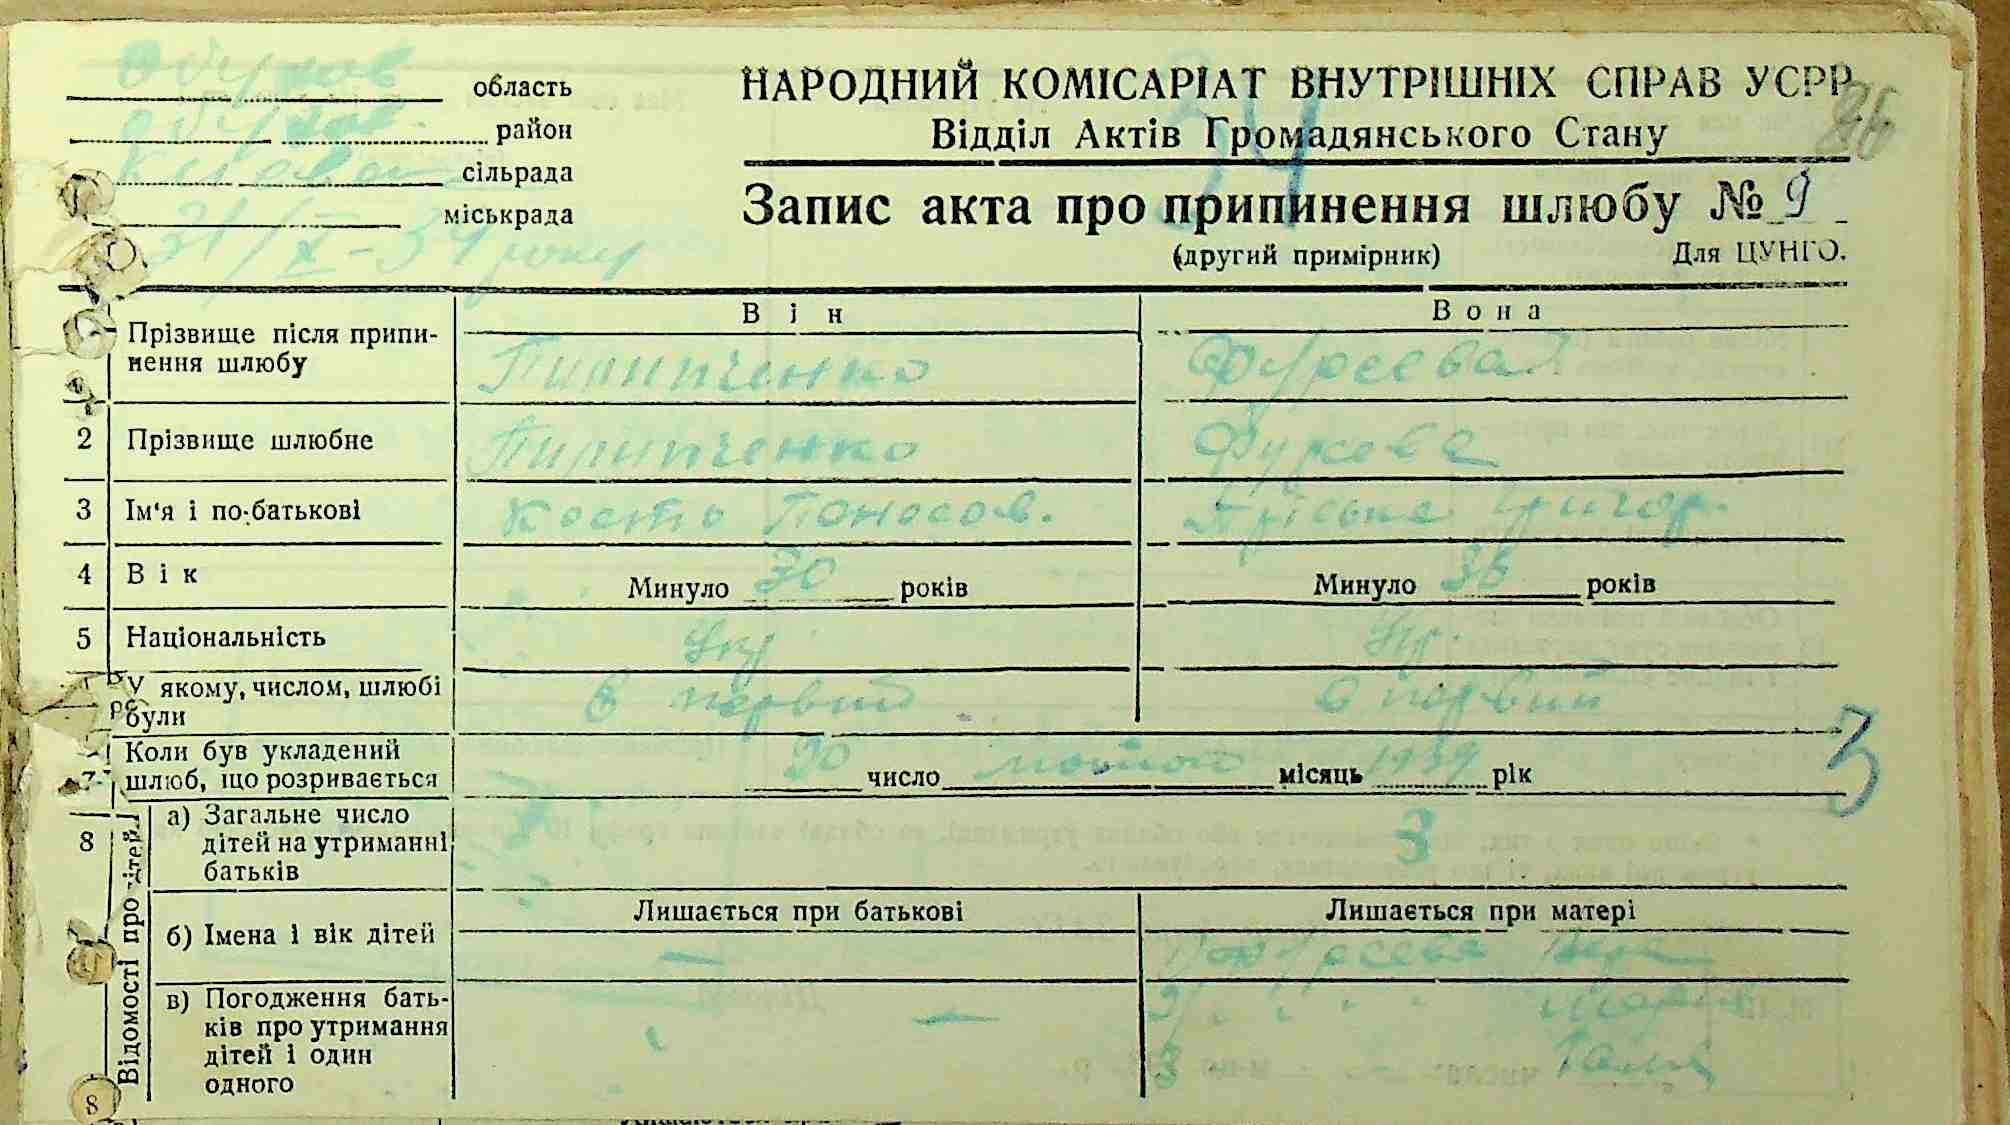 Обухов область
Обухов. район
сільрада
міськрада
31/X - 34 року
НАРОДНИЙ КОМІСАРІАТ ВНУТРІШНІХ СПРАВ УСРР
86
Відділ Актів Громадянського Стану
34
Запис акта про припинення шлюбу № 9
(другий примірник) Для ЦУНГО.
Він Вона
Прізвище після припинення шлюбу Пилипченко Фурсєва
2 Прізвище шлюбне Пилипченко Фурсєва
3 Ім'я і по-батькові Кость Панасов. Пріська Григор.
4 Вік Минуло 30 років Минуло 35 років
5 Національність Укр Укр.
У якому, числом, шлюбі були в первий в первий
Коли був укладений шлюб, що розривається число лютого місяць рік
3
8 Відомості про дітей
а) Загальне число дітей на утриманні батьків 3
Лишається при батькові Лишається при матері
б) Імена і вік дітей — 1) Фурсєва Вера
2) " " " Марія
3 Галя
в) Погодження батьків про утримання дітей і один одного —
8